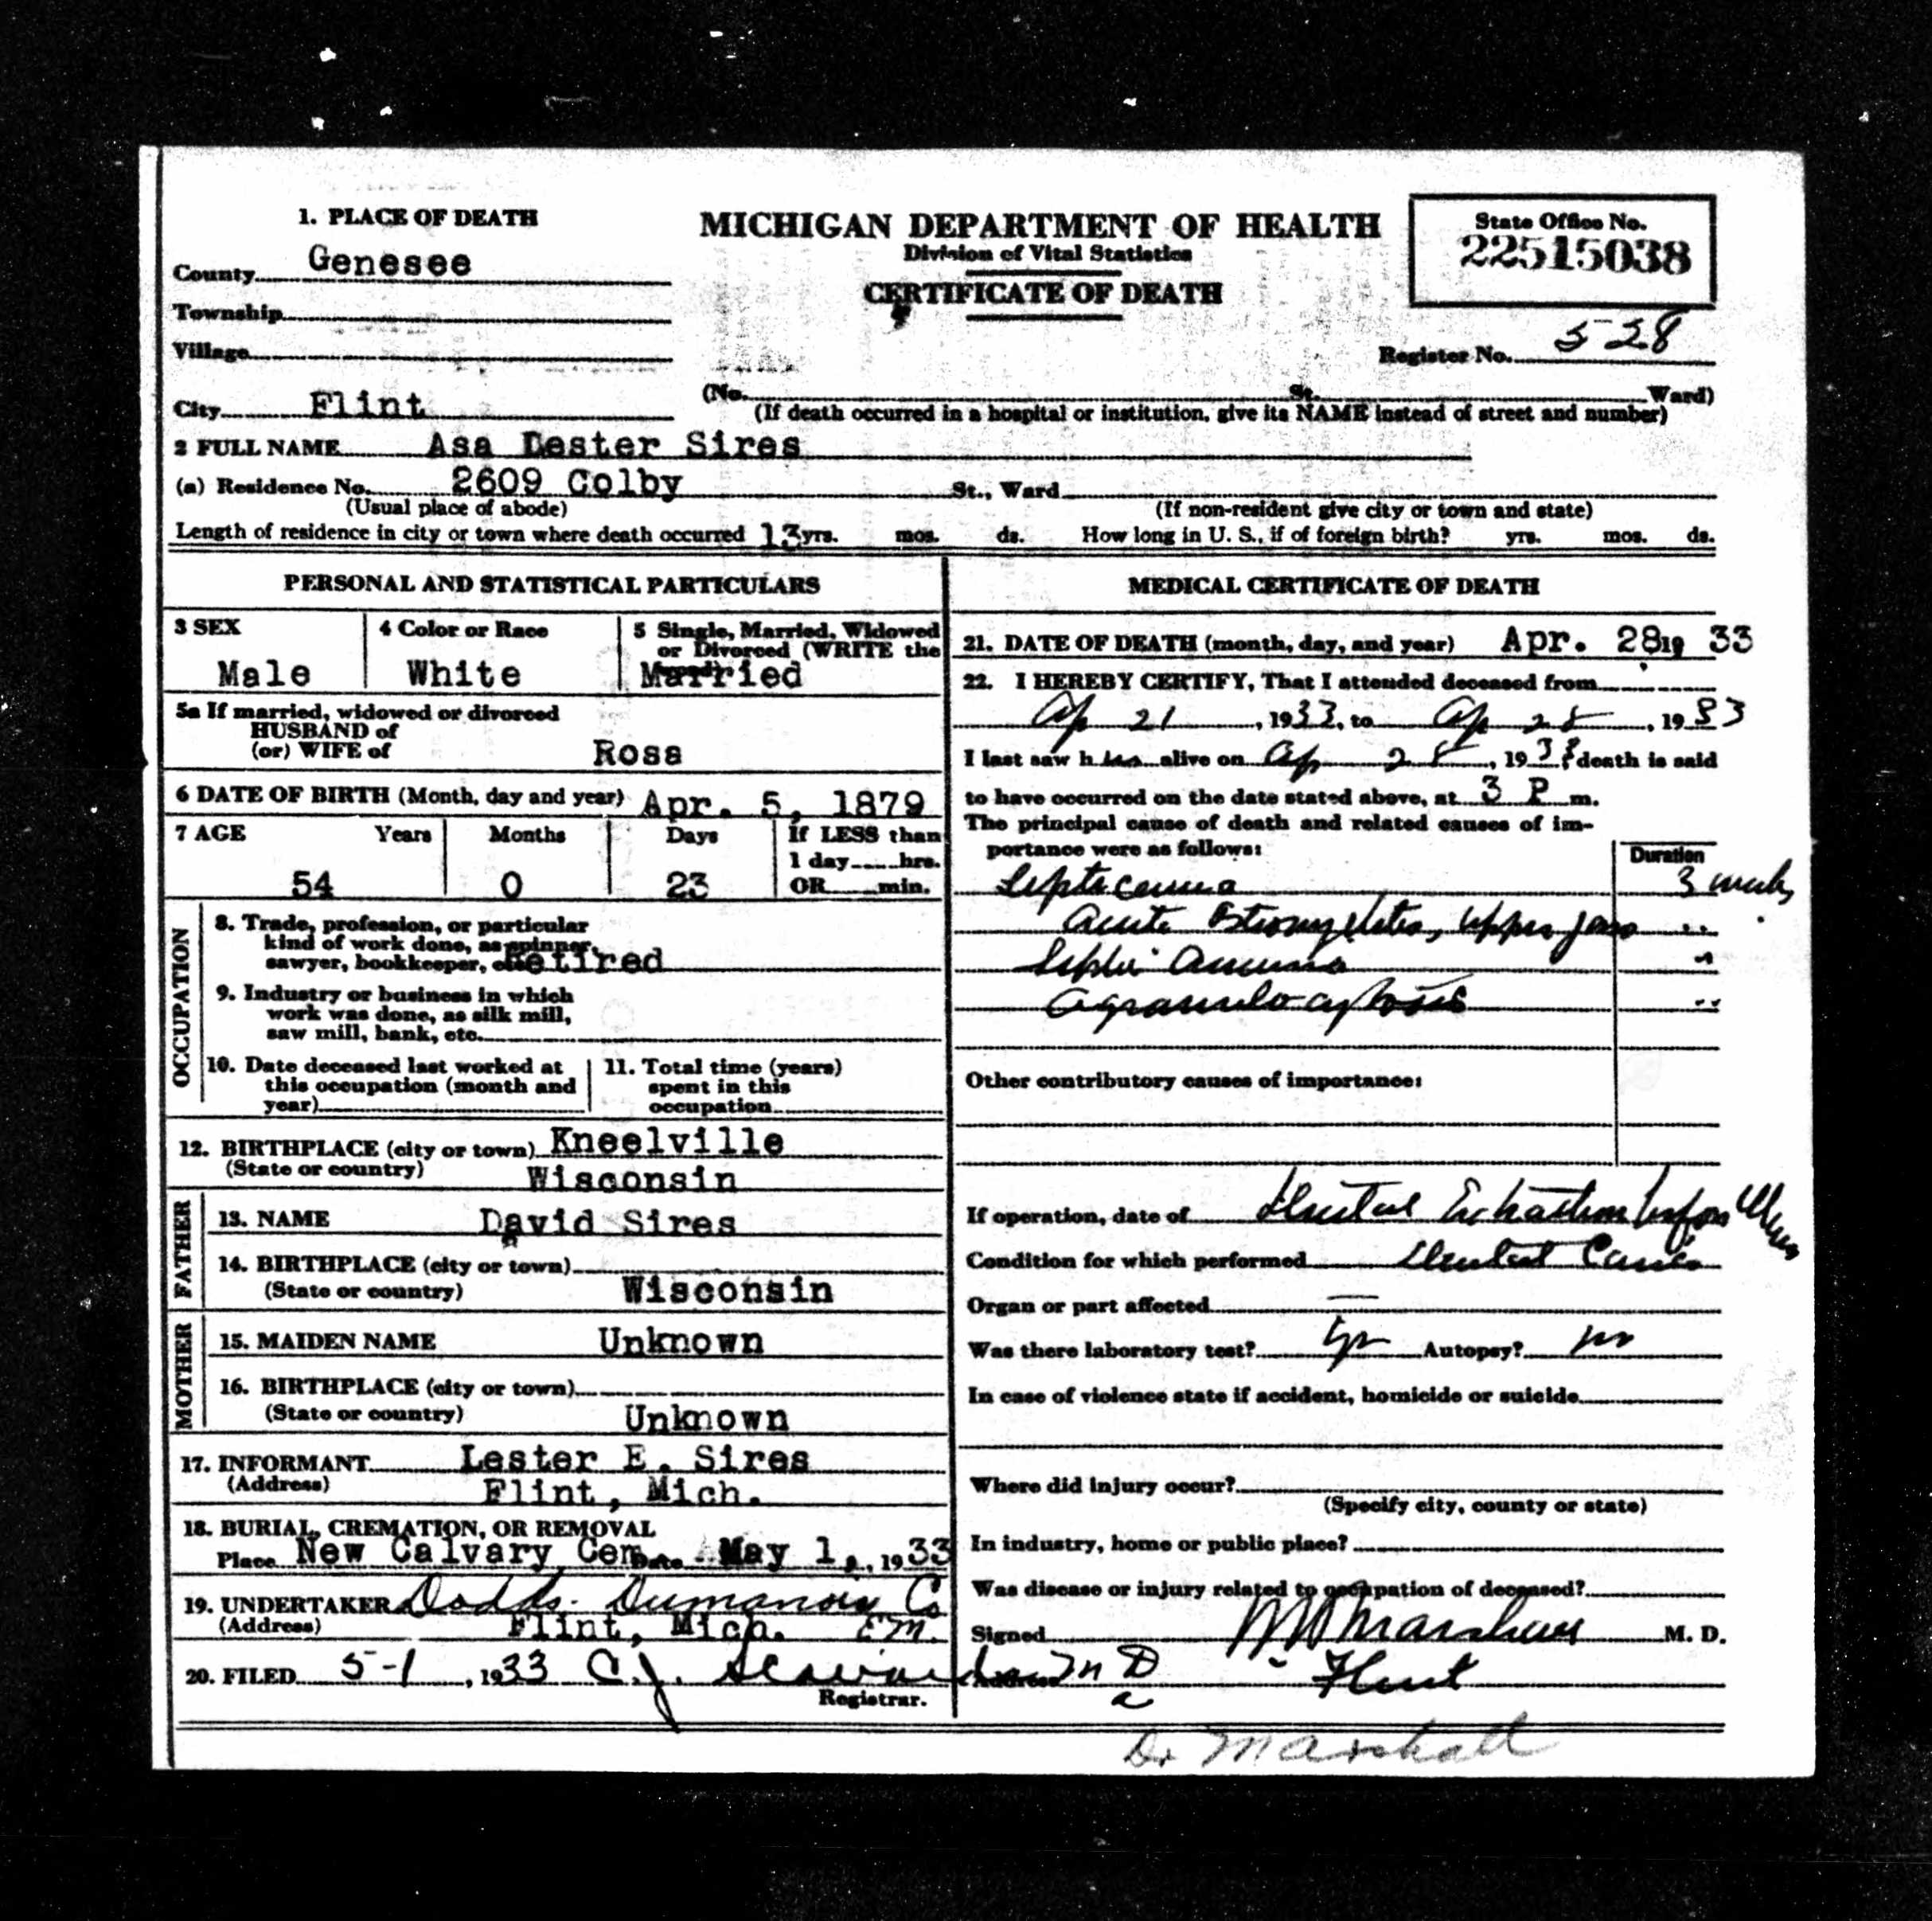 1. PLACE OF DEATH
MICHIGAN DEPARTMENT OF HEALTH
Division of Vital Statistics
CERTIFICATE OF DEATH
State Office No.
22515038
County Genesee
Township
Village
Register No. 528
City Flint (No. St. Ward)
(If death occurred in a hospital or institution, give its NAME instead of street and number)
2 FULL NAME Asa Lester Sires
(a) Residence No. 2609 Colby St., Ward
(Usual place of abode) (If non-resident give city or town and state)
Length of residence in city or town where death occurred 13 yrs. mos. ds. How long in U. S., if of foreign birth? yrs. mos. ds.
PERSONAL AND STATISTICAL PARTICULARS
3 SEX 4 Color or Race 5 Single, Married, Widowed
or Divorced (WRITE the
Male White Married
5a If married, widowed or divorced
HUSBAND of
(or) WIFE of Rosa
6 DATE OF BIRTH (Month, day and year) Apr. 5, 1879
7 AGE Years Months Days If LESS than
1 day hrs.
54 0 23 OR min.
OCCUPATION
8. Trade, profession, or particular
kind of work done, as spinner,
sawyer, bookkeeper, Retired
9. Industry or business in which
work was done, as silk mill,
saw mill, bank, etc.
10. Date deceased last worked at
this occupation (month and
year)
11. Total time (years)
spent in this
occupation
12. BIRTHPLACE (city or town) Kneelville
(State or country) Wisconsin
FATHER
13. NAME David Sires
14. BIRTHPLACE (city or town)
(State or country) Wisconsin
MOTHER
15. MAIDEN NAME Unknown
16. BIRTHPLACE (city or town)
(State or country) Unknown
17. INFORMANT Lester E. Sires
(Address) Flint, Mich.
18. BURIAL, CREMATION, OR REMOVAL
Place New Calvary Cem. Date May 1, 1933
19. UNDERTAKER Dodds-Dumanois Co
(Address) Flint, Mich. EM.
20. FILED 5-1, 1933 C. J. MD
Registrar.
MEDICAL CERTIFICATE OF DEATH
21. DATE OF DEATH (month, day, and year) Apr. 28 19 33
22. I HEREBY CERTIFY, That I attended deceased from
Ap 21, 1933, to Ap 28, 1933
I last saw him alive on Ap 28, 1933, death is said
to have occurred on the date stated above, at 3 P m.
The principal cause of death and related causes of im-
portance were as follows: Duration
Septicemia 3 weeks
Acute Osteomyelitis, upper jaw "
Septic Anemia "
Agranulocytosis "
Other contributory causes of importance:
If operation, date of Dental Extraction before illness
Condition for which performed Dental Caries
Organ or part affected —
Was there laboratory test? Yes Autopsy? no
In case of violence state if accident, homicide or suicide
Where did injury occur?
(Specify city, county or state)
In industry, home or public place?
Was disease or injury related to occupation of deceased?
Signed Marshall M. D.
Address Flint
Dr Marshall